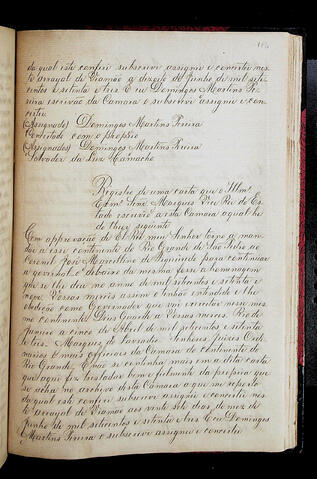 da qual este conferi subscrevi assignei e concertei nes
te arrayal de Viamão a dezoito de Junho de mil sete
centos e setenta e tres Eu Domingos Martins Pe
reira escrivão da Camara o subscrevi assignei e con
certei
(Assignado) Domingos Martins Pereira
Concertado com o proprio
(Assignados) Domingos Martins Pereira
Salvador da
Registo de uma carta que o Illmo
Exmo Snr Marquez Vice Rei do Es
tado escreveo a esta Camara a qual he
de theor seguinte
Com approvação de El Rei meu Senhor torno a man
dar a esse continente do Rio Grande de São Pedro ao
Coronel José Marcellino de Figueiredo para continuar
a governal-o debaixo da mesma forse a homenagem
que se lhe deo no anno de mil setecentos e setenta e
nove Vossas mercês assim o tenhão entendido e lhe
obedição como Governador que vai exercitar nesse mes
mo continente Deus Guarde a Vossas mercês Rio de
Janeiro a cinco de Abril de mil setecentos e setenta
e tres Marquez de Lavradio Senhores Juizes Ordi
narios e mais officiaes da Camara do continente do
Rio Grande E não se continha mais em a dita carta
que aqui fiz trasladar bem e fielmente da propria que
se acha no archivo desta Camara a que me reporto
da qual este conferi subscrevi assignei e concertei nes
te arrayal de Viamão aos vinte sete dias do mez de
Junho de mil setecentos e setenta e tres E eu Domingos
Martins Pereira o subscrevi assignei e concertei